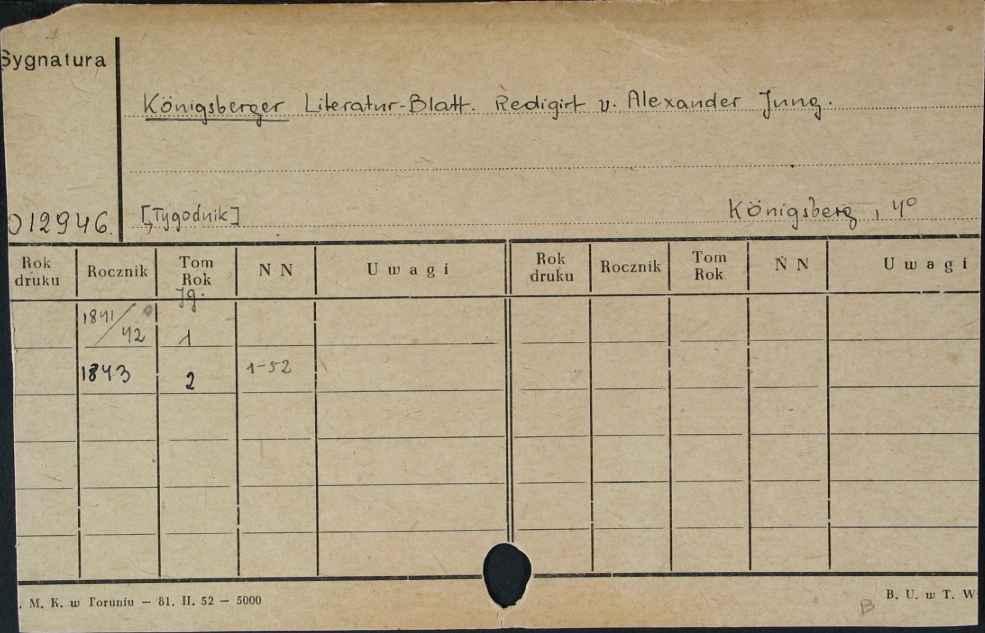 Sygnatura
Königsberger Literatur-Blatt. Redigirt v. Alexander Jung.
012946. [Tygodnik] Königsberg, 4°
Rok druku Rocznik Tom Rok N N Uwagi Rok druku Rocznik Tom Rok N N Uwagi
Jg.
1841/42 1
1843 2 1-52
. M. K. w Toruniu — 81. II. 52 — 5000 B. U. w T. W
B